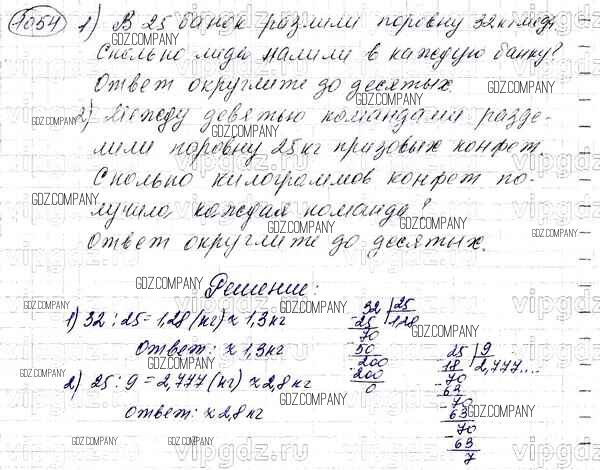 1054 1) В 25 банок разлили поровну 32 кг меда
Сколько меда налили в каждую банку?
Ответ округлите до десятых.
2) Между девятью командами разде-
лили поровну 25 кг призовых конфет.
Сколько килограммов конфет по-
лучила каждая команда?
Ответ округлите до десятых.
Решение:
1) 32 : 25 = 1,28 (кг) ≈ 1,3 кг
Ответ: ≈ 1,3 кг
2) 25 : 9 = 2,777 (кг) ≈ 2,8 кг
Ответ: ≈ 2,8 кг
32 | 25
-25 | 1,28
70
-50
200
-200
0
25 | 9
-18 | 2,777....
-70
63
-70
63
-70
-63
7
GDZ.COMPANY
vipgdz.ru